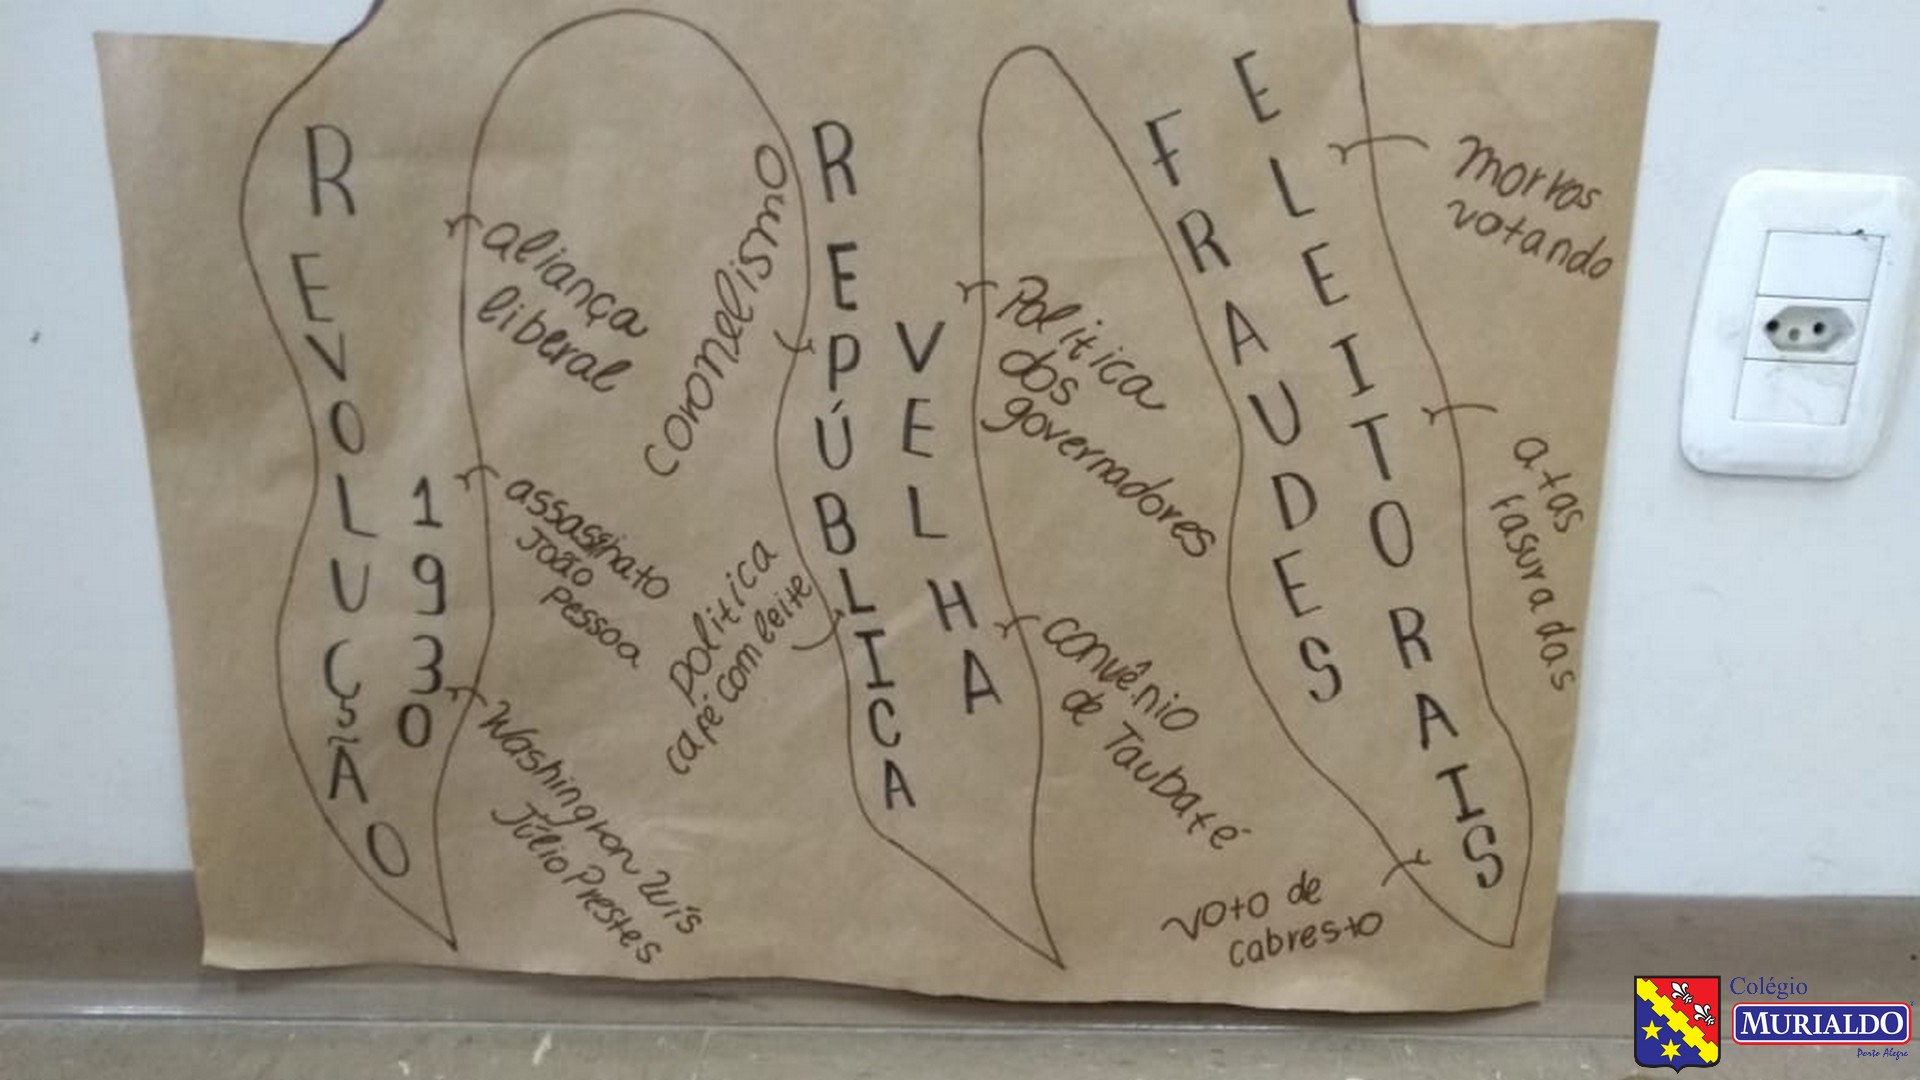 REVOLUÇÃO
1930
aliança
liberal
assassinato
João
pessoa
Washington Luís
Júlio Prestes
REPÚBLICA
VELHA
coronelismo
politica
café com leite
Politica
dos
governadores
convênio
de Taubaté
FRAUDES
ELEITORAIS
morros
votando
atas
rasuradas
voto de
cabresto
Colégio
MURIALDO
Porto Alegre